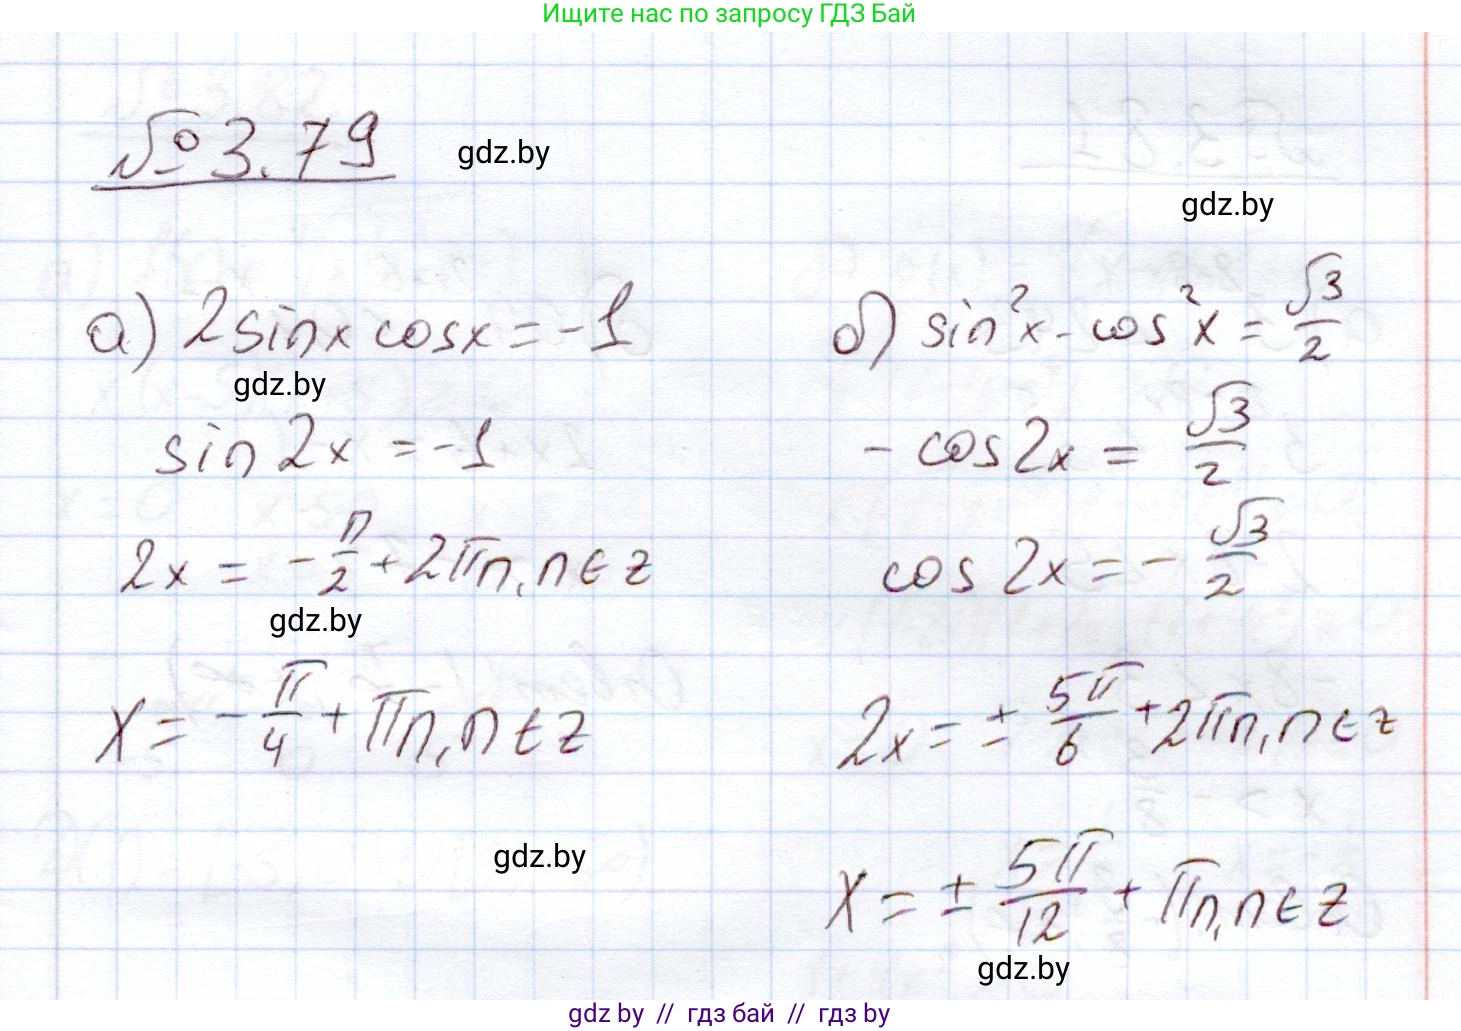 Ищите нас по запросу ГДЗ Бай
№ 3.79
gdz.by
gdz.by
а) 2sinx cosx = -1
gdz.by
sin 2x = -1
2x = - π/2 + 2πn, n ∈ z
gdz.by
x = - π/4 + πn, n ∈ z
gdz.by
б) sin²x - cos²x = √3/2
- cos 2x = √3/2
cos 2x = - √3/2
2x = ± 5π/6 + 2πn, n ∈ z
x = ± 5π/12 + πn, n ∈ z
gdz.by
gdz by // гдз бай // гдз by